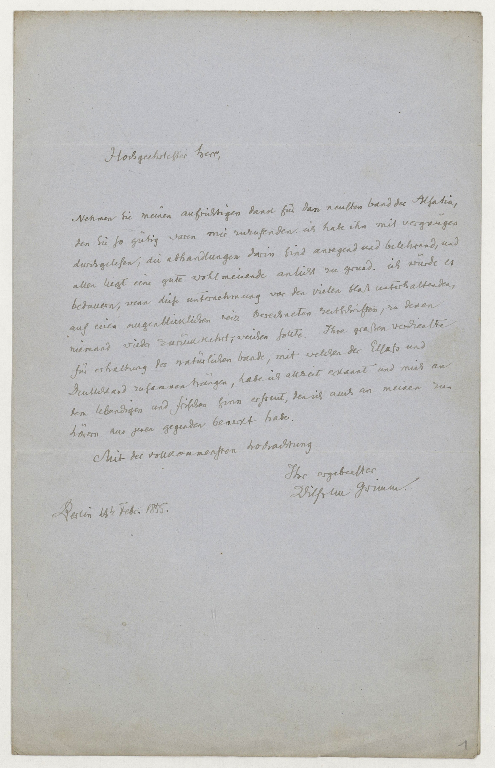 Hochgeehrtester Herr,
Nehmen Sie meinen aufrichtigen dank für den neusten band der Alsatia,
den Sie so gütig waren mir zuzusenden. ich habe ihn mit vergnügen
durchgelesen; die abhandlungen darin sind anregend und belehrend, und
allen liegt eine gute wohlmeinende ansicht zu grund. ich würde es
bedauern, wenn diese unternehmung vor den vielen bloß unterhaltenden,
auf einen augenblicklichen reiz berechneten zeitschriften, zu denen
niemand wieder zurückkehrt, weichen sollte. Ihre großen verdienste
für erhaltung des natürlichen bands, mit welchem der Elsass und
Deutschland zusammen hängen, habe ich allzeit erkannt und mich an
dem lebendigen und frischen sinn erfreut, den ich auch an meinen zu
hörern aus jenen gegenden bemerkt habe.
Mit der vollkommensten hochachtung
Ihr ergebenster
Wilhelm Grimm.
Berlin Febr. 1855.
1